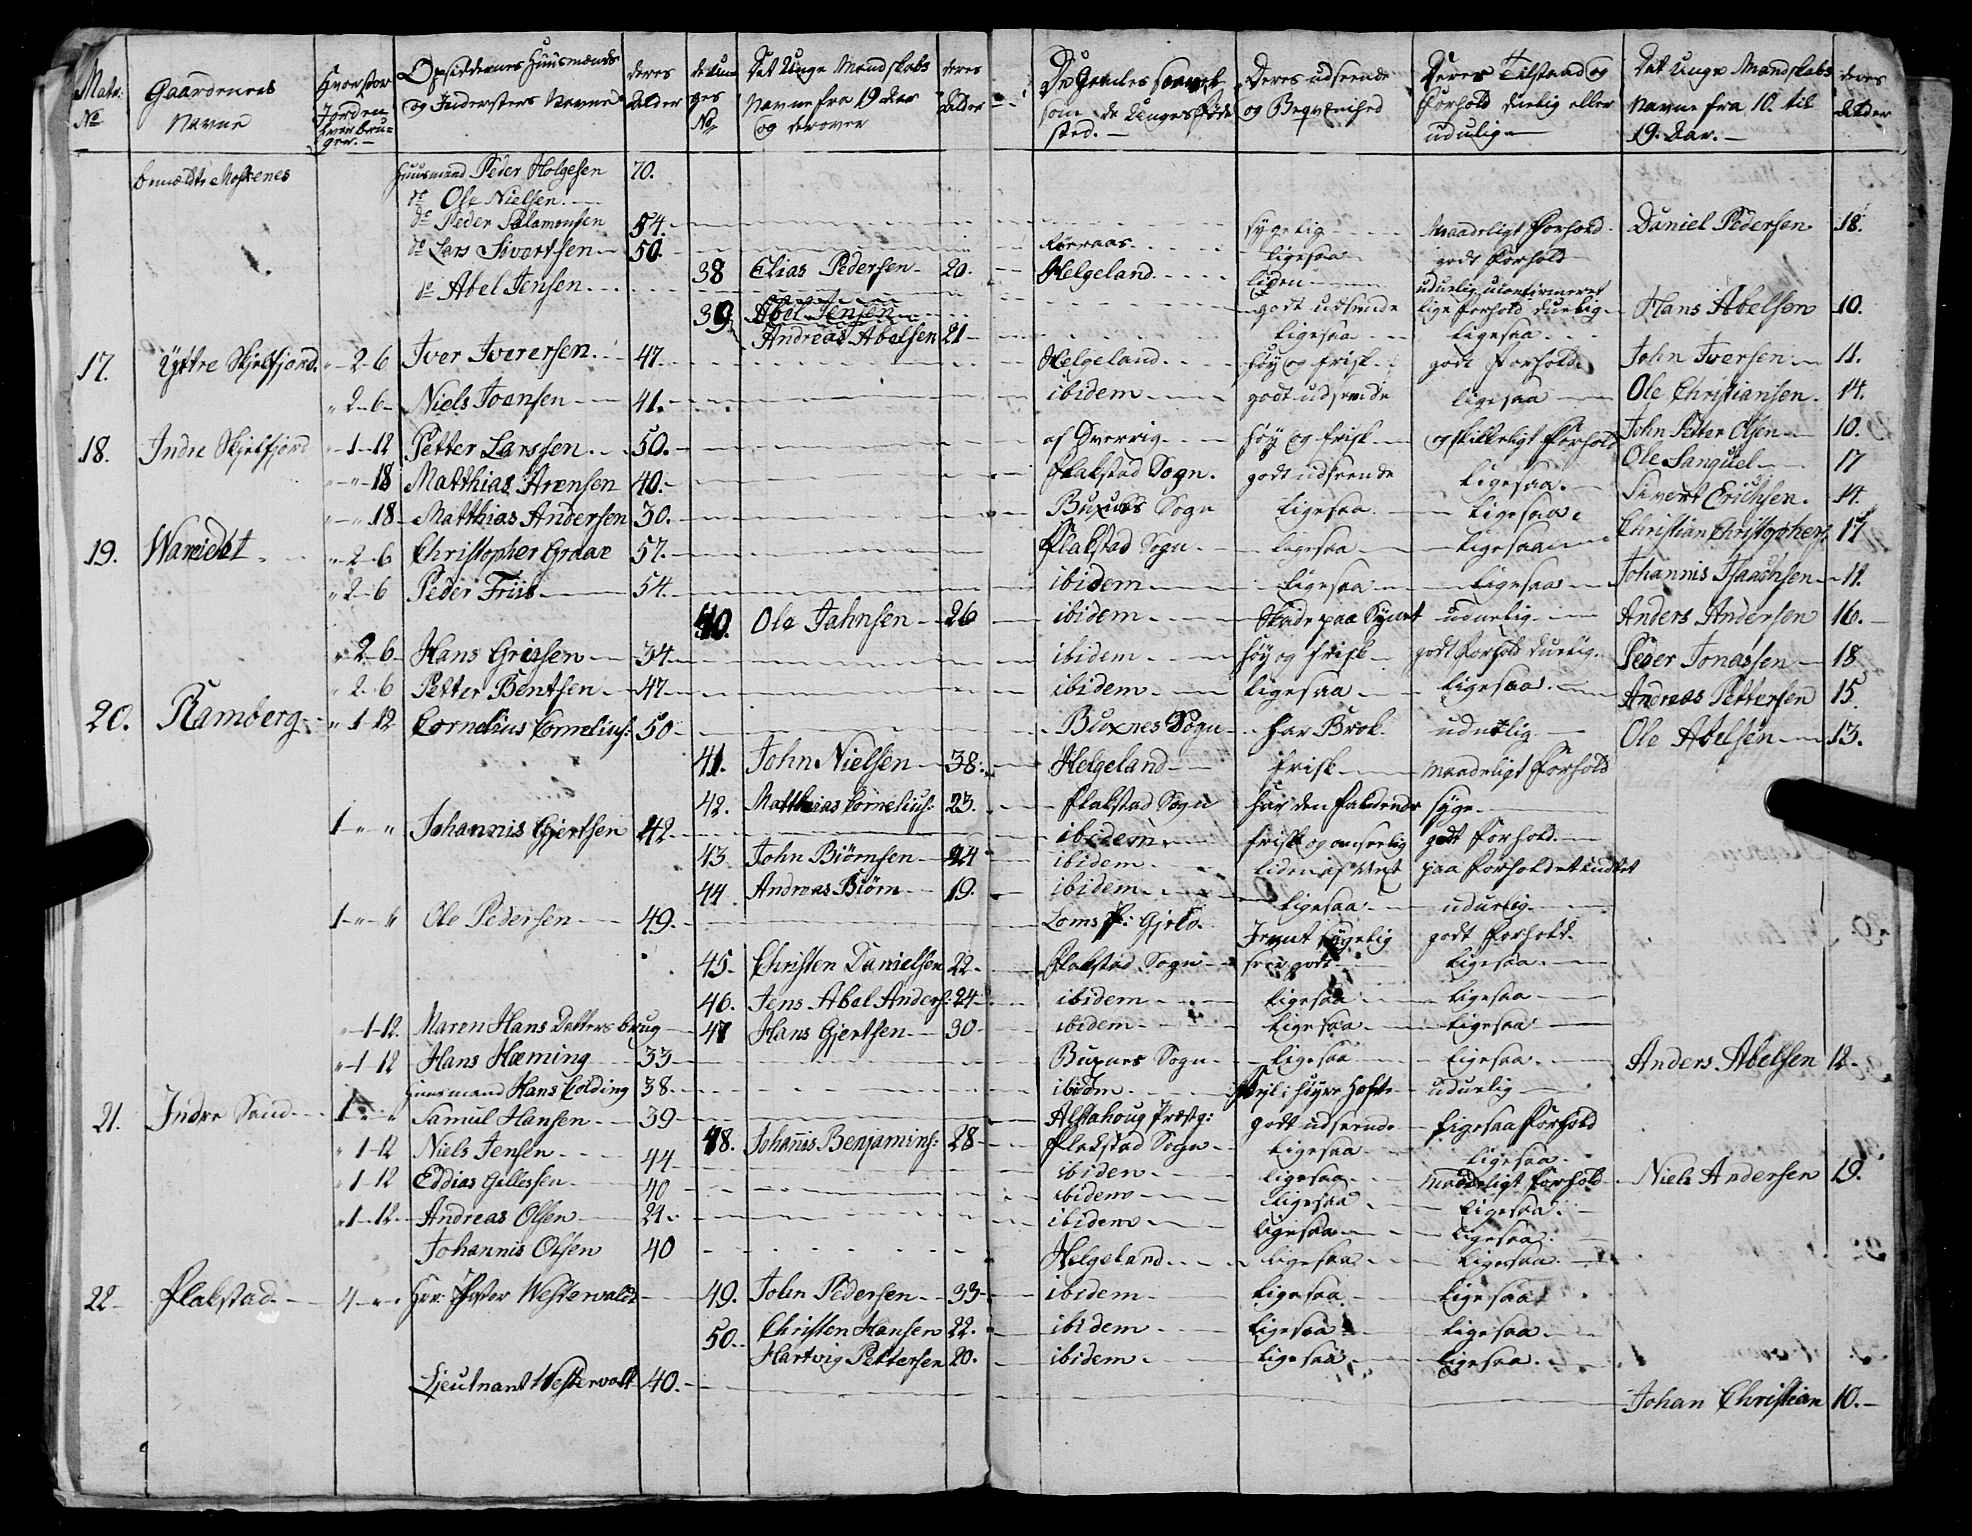 Matr: No | Gaardenes Navne | Hvor stor Jorden hver bruger.- | Opsiddernes Huusmænds og Indersters Navne | deres Alder | de Unges No | Det Unge Mandskabs Navne fra 19 Aar og derover | deres Alder | De Gamles saavel som de Unges Fødested.- | Deres udseende og Beqvemhed | Deres Tilstand og Forhold duelig eller uduelig | Det Unge Mandskabs Navne fra 10. til 19. Aar.- | deres Alder
Huusmand Peder Holgesen 70.
do Ole Nielsen.
do Peder Salamonsen 54. sygelig Maadeligt Forhold Daniel Pedersen 18.
do Lars Sivertsen 50. Røeraas ligesaa godt Forhold
38 Elias Pedersen 20. Helgeland liden uduelig uconfirmeret
do Abel Jensen godt udseende Forhold duelig Hans Abelsen 10.
39 Abel Jensen
Andreas Abelsen 21 ligesaa ligesaa
17. Yttre Skjelfjord. " 2-6 Iver Iverersen. 47. Helgeland høy og frisk godt Forhold John Iversen 11.
" 2-6 Niels Joensen 41. ibidem godt udseende ligesaa Ole Christiansen 14.
18. Indre Skjelfjord " 1-12 Petter Larssen 50. af Sverrig høy og frisk og skikkeligt Forhold John Petter Olsen 10.
Ole Sanquel 17
" " 18 Matthias Arensen 40. Flakstad Sogn. godt udseende ligesaa Sivert Erichsen. 14.
" " 18 Matthias Andersen 30. Buxnes Sogn ligesaa ligesaa Christian Christophers. 17
19. " 2-6 Christopher Graae 57. Flakstad Sogn ligesaa ligesaa
" 2-6 Peder Friis 54. ibidem ligesaa ligesaa Johannis Isaachsen 11.
40. Ole Jahnsen 26 ibidem Skade paa Synet uduelig Anders Andersen 16.
" 2-6 Hans Greisen 34. ibidem høy og frisk godt Forhold duelig. Peder Jonassen 18
" 2-6 Petter Bentsen 47 ibidem ligesaa ligesaa Andreas Pettersen 15
20. Ramberg " 1-12 Cornelius Cornelius: 50 Buxnes Sogn har Brok. uduelig Ole Abelsen 13.
41. John Nielsen 38. Helgeland frisk maadeligt Forhold
42. Matthias Cornelius: 23. Flakstad Sogn har den faldende Syge
1 " " Johannis Gjertsen 42. ibidem frisk og godt Forhold
43 John Biørnsen 24 ibidem liden af Vext paa Forholdet
44. Andreas Biørn 19. ibidem ligesaa uduelig
1 " 6 Ole Pedersen 49. Loms P: sygelig godt Forhold.
45. Christen Danielsen 22. Flakstad Sogn seer godt ligesaa
46. Jens Abel Anders: 24 ibidem ligesaa ligesaa
" 1-12. Maren Hans Datters brug 47 Hans Gjertsen 30 ibidem ligesaa ligesaa
" 1-12 Hans Hæming 33 Buxnes Sogn ligesaa ligesaa Anders Abelsen 12.
Huusmand Hans Colding 38. ibidem Feil i høyre Hofte uduelig
21. Indre Sand 1 " " Samul Hansen 39 Alstahoug Præstg: godt udseende ligesaa Forhold
" 1-12 Niels Jensen 44 48. Johannis Benjamins: 28 Flakstad Sogn ligesaa ligesaa
" 1-12 Eddias Gillessen 40 ibidem ligesaa maadeligt Forhold Niels Andersen 19.
" 1-12 Andreas Olsen 24. ibidem ligesaa ligesaa
Johannis Olsen 40 ibidem ligesaa ligesaa
Helgeland ligesaa ligesaa
22 Flakstad 4 " " Hrr. Westerwaldt 49. John Pedersen 33 ibidem ligesaa ligesaa
50. Christen Hansen 22. ibidem ligesaa ligesaa
Hartvig Pettersen 20. ibidem ligesaa ligesaa
Lieutnant Westervalt 40. Johan Christian 10.